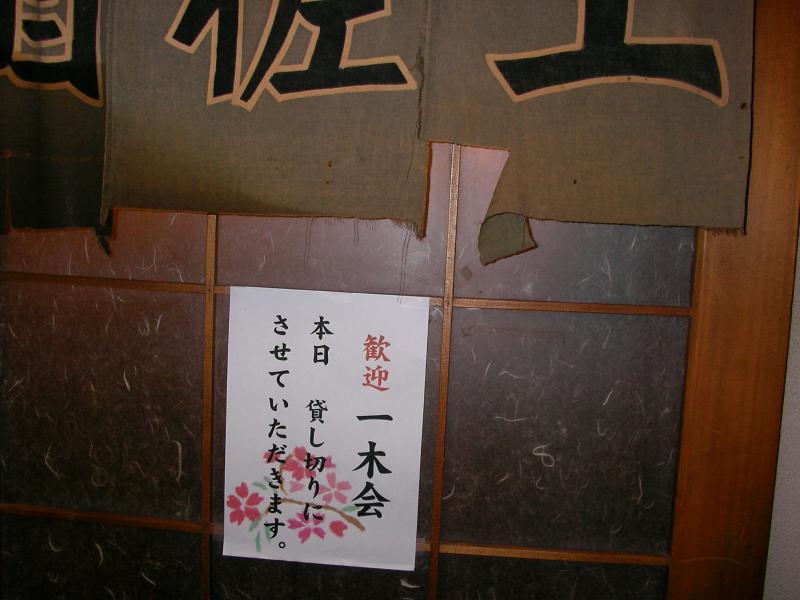 土佐
歓迎 一木会
本日 貸し切りに
させていただきます。